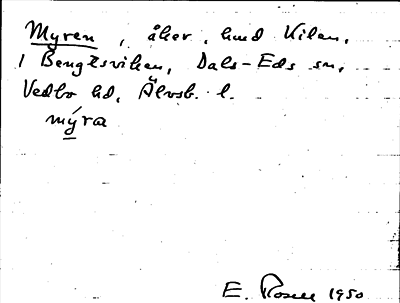 Myren, åker, hmd Kilen,
1 Bengtsviken, Dals-Eds sn,
Vedbo hd, Älvsb. l.
mýra
E. Rosell 1950